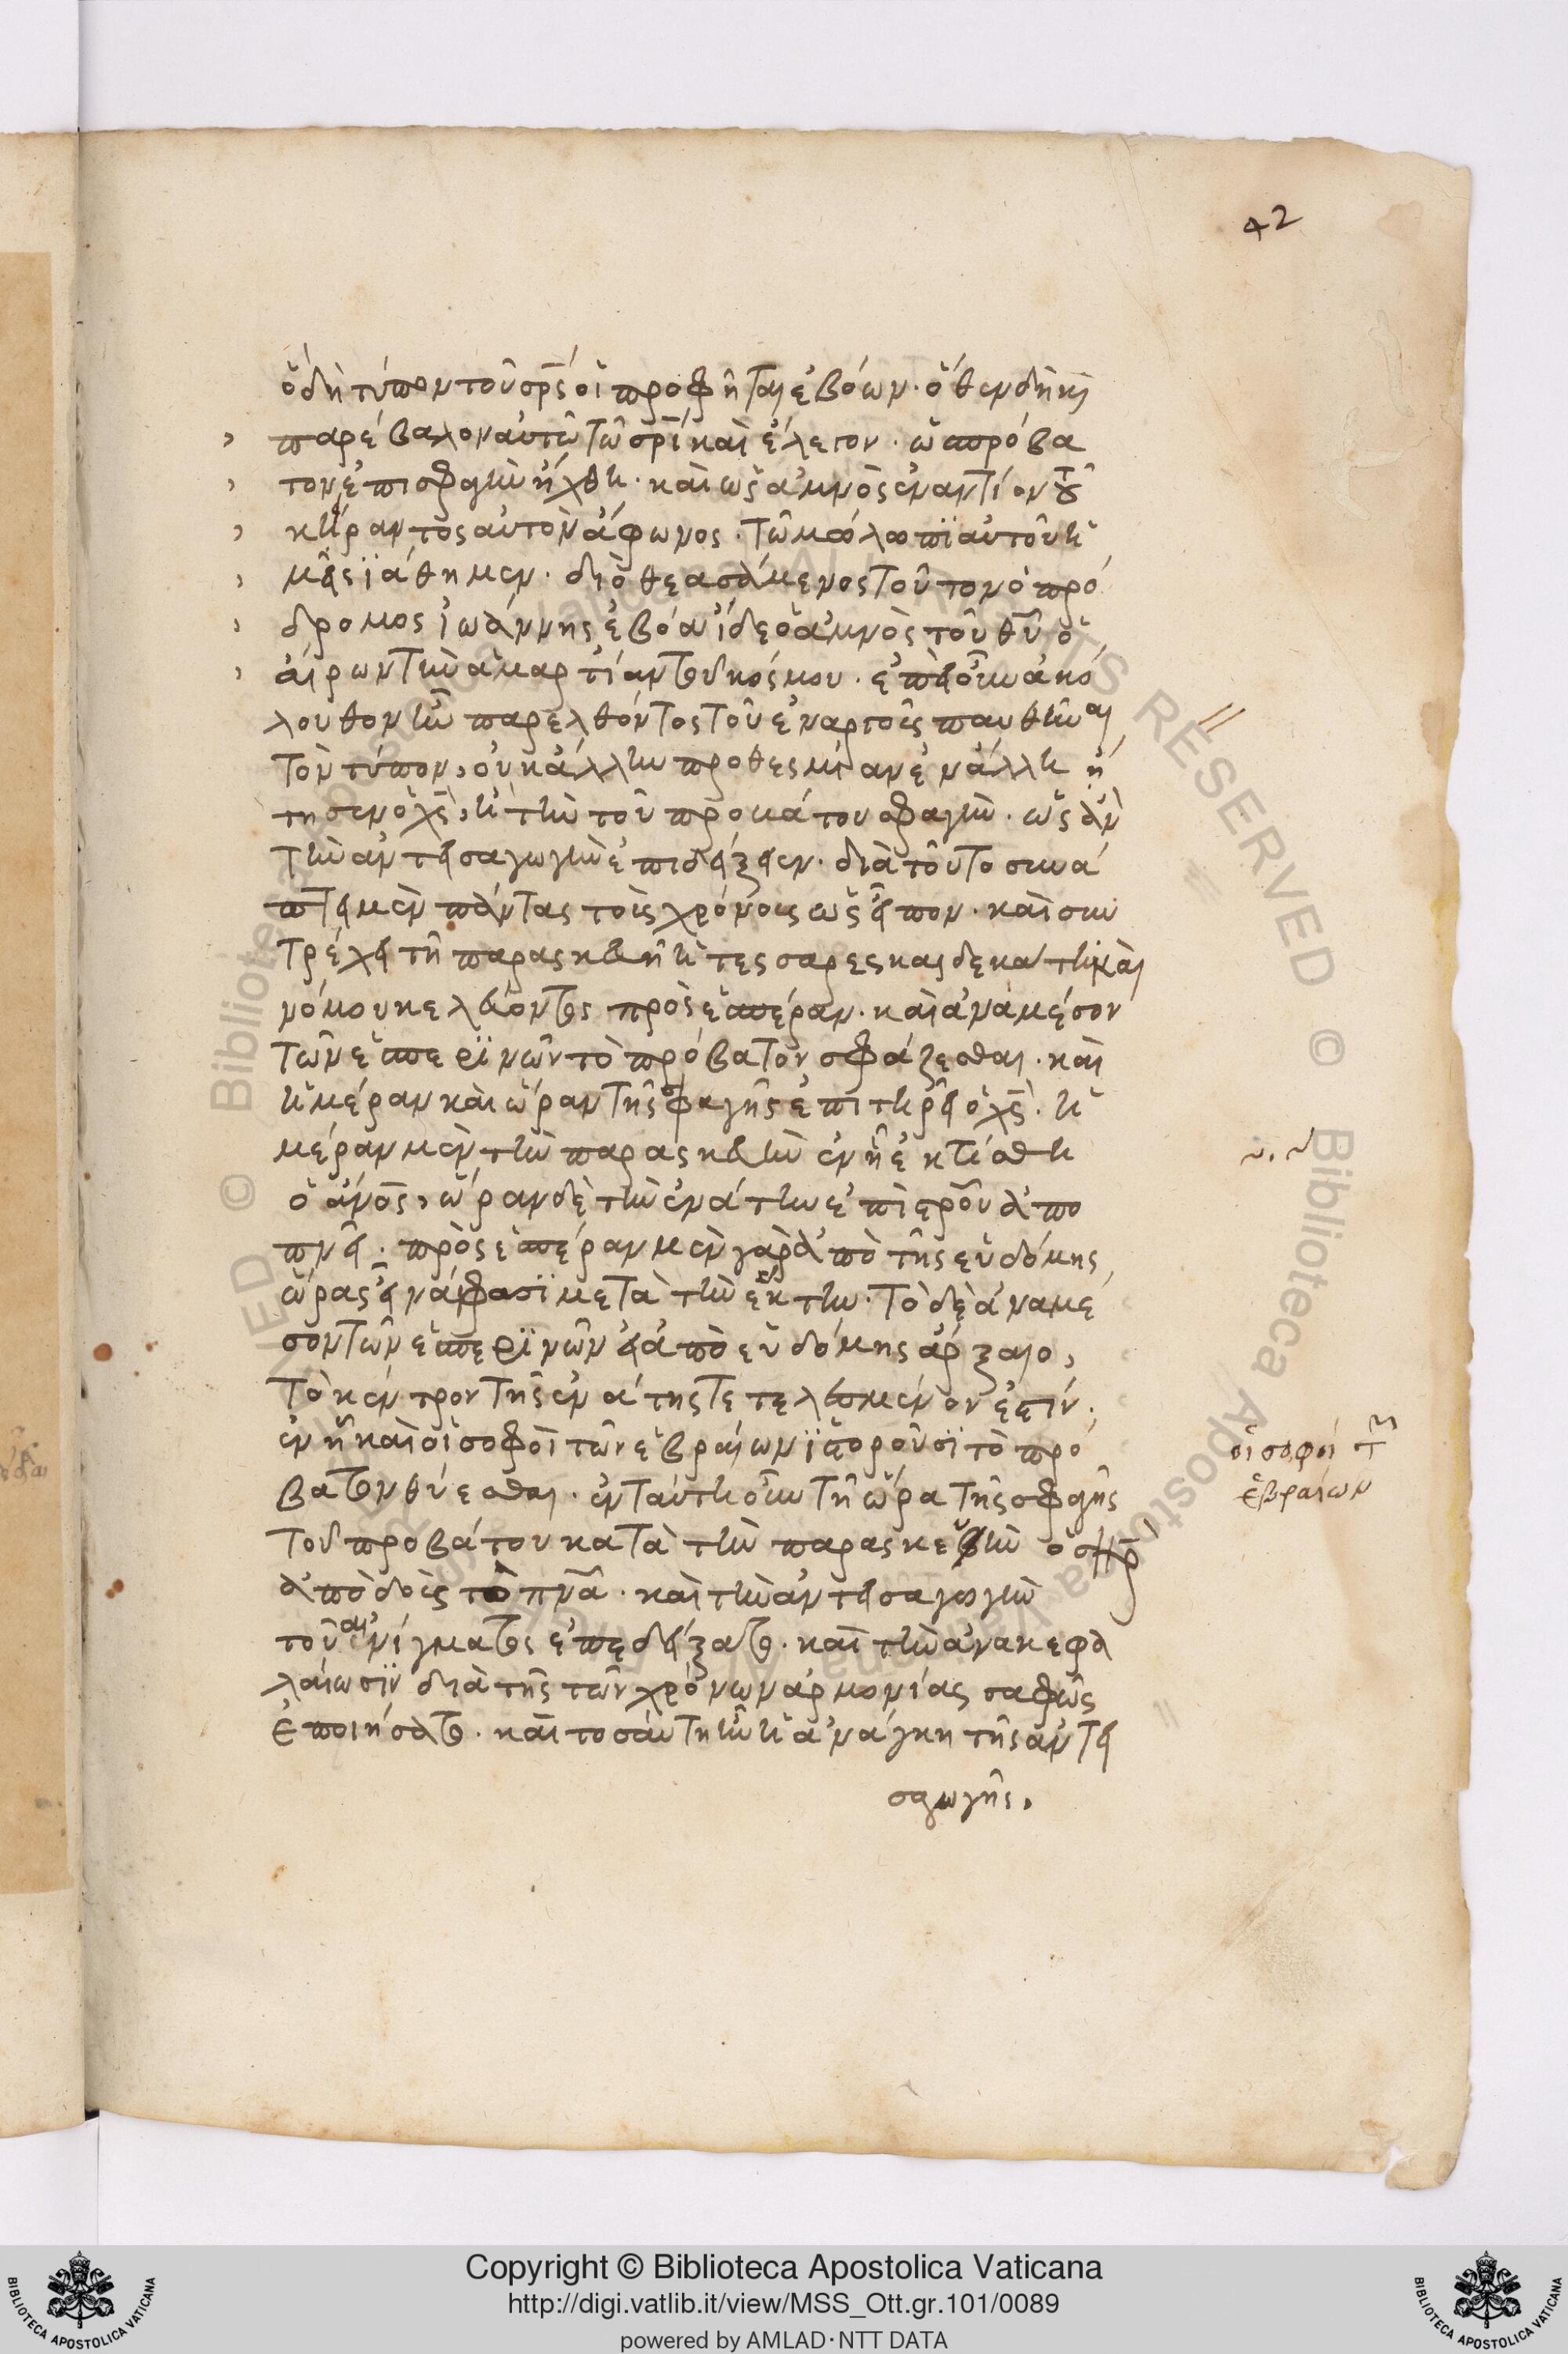 42
ὃ δὴ τύπον τοῦ σρ̅ς οἱ προφῆται ἐβόων· ὅθεν δὴ καὶ
παρέβαλον αὐτῶ τῶ σρ̅ι καὶ ἔλεγον· ὡς πρόβα
τον ἐπὶ σφαγὴν ἤχθη· καὶ ὡς ἀμνὸς ἐναντίον τοῦ
κείραντος αὐτὸν ἄφωνος· τῶ μώλωπι αὐτοῦ ἡ
μεῖς ἰάθημεν· διὸ θεασάμενος τοῦτον ὁ πρό
δρομος ἰωάννης ἐβόα ἴδε ὁ ἀμνὸς τοῦ θυ̅ ὁ
αἴρων τὴν ἁμαρτίαν τοῦ κόσμου· ἐπεὶ οὖν ἀκό
λουθον ἦν παρελθόντος τοῦ ἔαρ τοῖς παυθῆναι
τὸν τύπον, οὐκ ἄλλην προθεσμίαν ἐν ἄλλη
τῆς ἐνοχῆς, ἢ τὴν τοῦ προβάτου σφαγὴν· ὡς ἂν
τὴν ἀντεισαγωγὴν ἐπιδείξειεν· διὰ τοῦτο συνά
πτει μὲν πάντας τοὺς χρόνους ὡς εἶπον· καὶ συν
τρέχει τῆ παρασκευῆ ἡ τεσσαρεσκαιδεκάτη καὶ
νόμου κελεύοντος πρὸς ἑσπέραν· καὶ ἀναμέσον
τῶν ἑσπερινῶν τὸ πρόβατον σφάζεσθαι· καὶ
ἡμέραν καὶ ὥραν τῆς σφαγῆς ἐπιτηρεῖ ὁ χς̅· ἡ
μέραν μὲν τὴν παρασκευὴν ἐν ἧ ἐκτίσθη
ὁ ἄνος̅, ὥραν δὲ τὴν ἐνάτην ἐπὶ σροῦ ἀπο
πνεῖ· πρὸς ἑσπέραν μὲν γὰρ ἀπὸ τῆς ἑβδόμης
ὥρας εἶναί φασι μετὰ τὴν ἕκτην· τὸ δὲ ἀναμέ
σον τῶν ἑσπερινῶν εἰ ἀπὸ ἑβδόμης ἄρξαιο,
τὸ κέντρον τῆς ἐνάτης τετελεσμένον ἐστίν·
ἐν ἧ καὶ οἱ σοφοὶ τῶν ἑβραίων ἱστοροῦσι τὸ πρό
βατον θύεσθαι· ἐν ταύτη οὖν τῆ ὥρα τῆς σφαγῆς
τοῦ προβάτου κατὰ τὴν παρασκευὴν ὁ σηρ̅
ἀποδοὺς τὸ πνα̅· καὶ τὴν ἀντεισαγωγὴν
τοῦ αἰνίγματος ἐπεδείξατο· καὶ τὴν ἀνακεφα
λαίωσιν διὰ τῆς τῶν χρόνων ἁρμονίας σαφῶς
ἐποιήσατο· καὶ τοσαύτη ἦν ἡ ἀνάγκη τῆς ἀντει
σαγωγῆς.
οἱ σοφοὶ τῶν
ἑβραίων
Copyright © Biblioteca Apostolica Vaticana
http://digi.vatlib.it/view/MSS_Ott.gr.101/0089
powered by AMLAD·NTT DATA
BIBLIOTECA APOSTOLICA VATICANA
BIBLIOTECA APOSTOLICA VATICANA